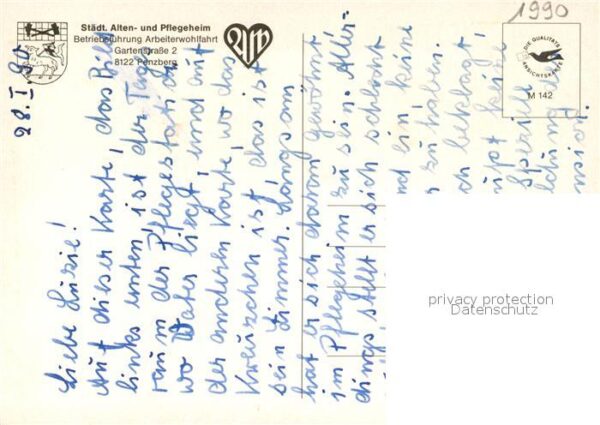 Städt. Alten- und Pflegeheim
Betriebsführung Arbeiterwohlfahrt
Gartenstraße 2
8122 Penzberg
AW
1990
DIE QUALITÄTS
ANSICHTSKARTE
M 142
28.I.90
Liebe Luzie!
Auf dieser Karte, das Bild
links unten ist der Tages
raum der Pflegestation
wo Vater liegt, und auf
der anderen Karte, wo das
Kreuzchen ist, das ist
sein Zimmer. Langsam
hat er sich daran gewöhnt
im Pflegeheim zu sein. Aller-
dings, stellt er sich schlecht
und ein, keine
zu haben.
ch beklagt,
upt keine
Speise
privacy protection
Datenschutz